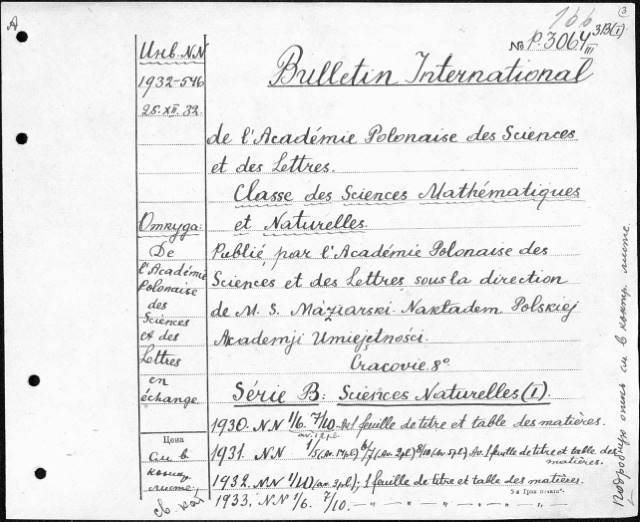 A
166 ③
№ P.3064 3B(I)
III
Инв. NN
1932-546
25.XII.32.
Bulletin International
de l'Académie Polonaise des Sciences
et des Lettres.
Classe des Sciences Mathématiques
et Naturelles.
Publié par l'Académie Polonaise des
Sciences et des Lettres sous la direction
de M. S. Maziarski. Nakładem Polskiej
Academji Umiejętności.
Cracovie. 8°
Série B: Sciences Naturelles (I).
Откуда:
De
l'Académie
Polonaise
des
Sciences
et des
Lettres
en
échange
Цена
См. в
конц.
листе.
1930. NN 1/6. 7/10. 1 feuille de titre et table des matières.
1931. NN 1/5 (av. 14pl.) 6/7 (av. 2pl.) 8/10 (av. 5pl.) 1 feuille de titre et table des
matières.
1932. NN 1/10 (av. 3pl.); 1 feuille de titre et table des matières.
1933. NN 1/6. 7/10. — „ — „ — „ — „ —
св. кат
Подробную опись см. в контр. листе.